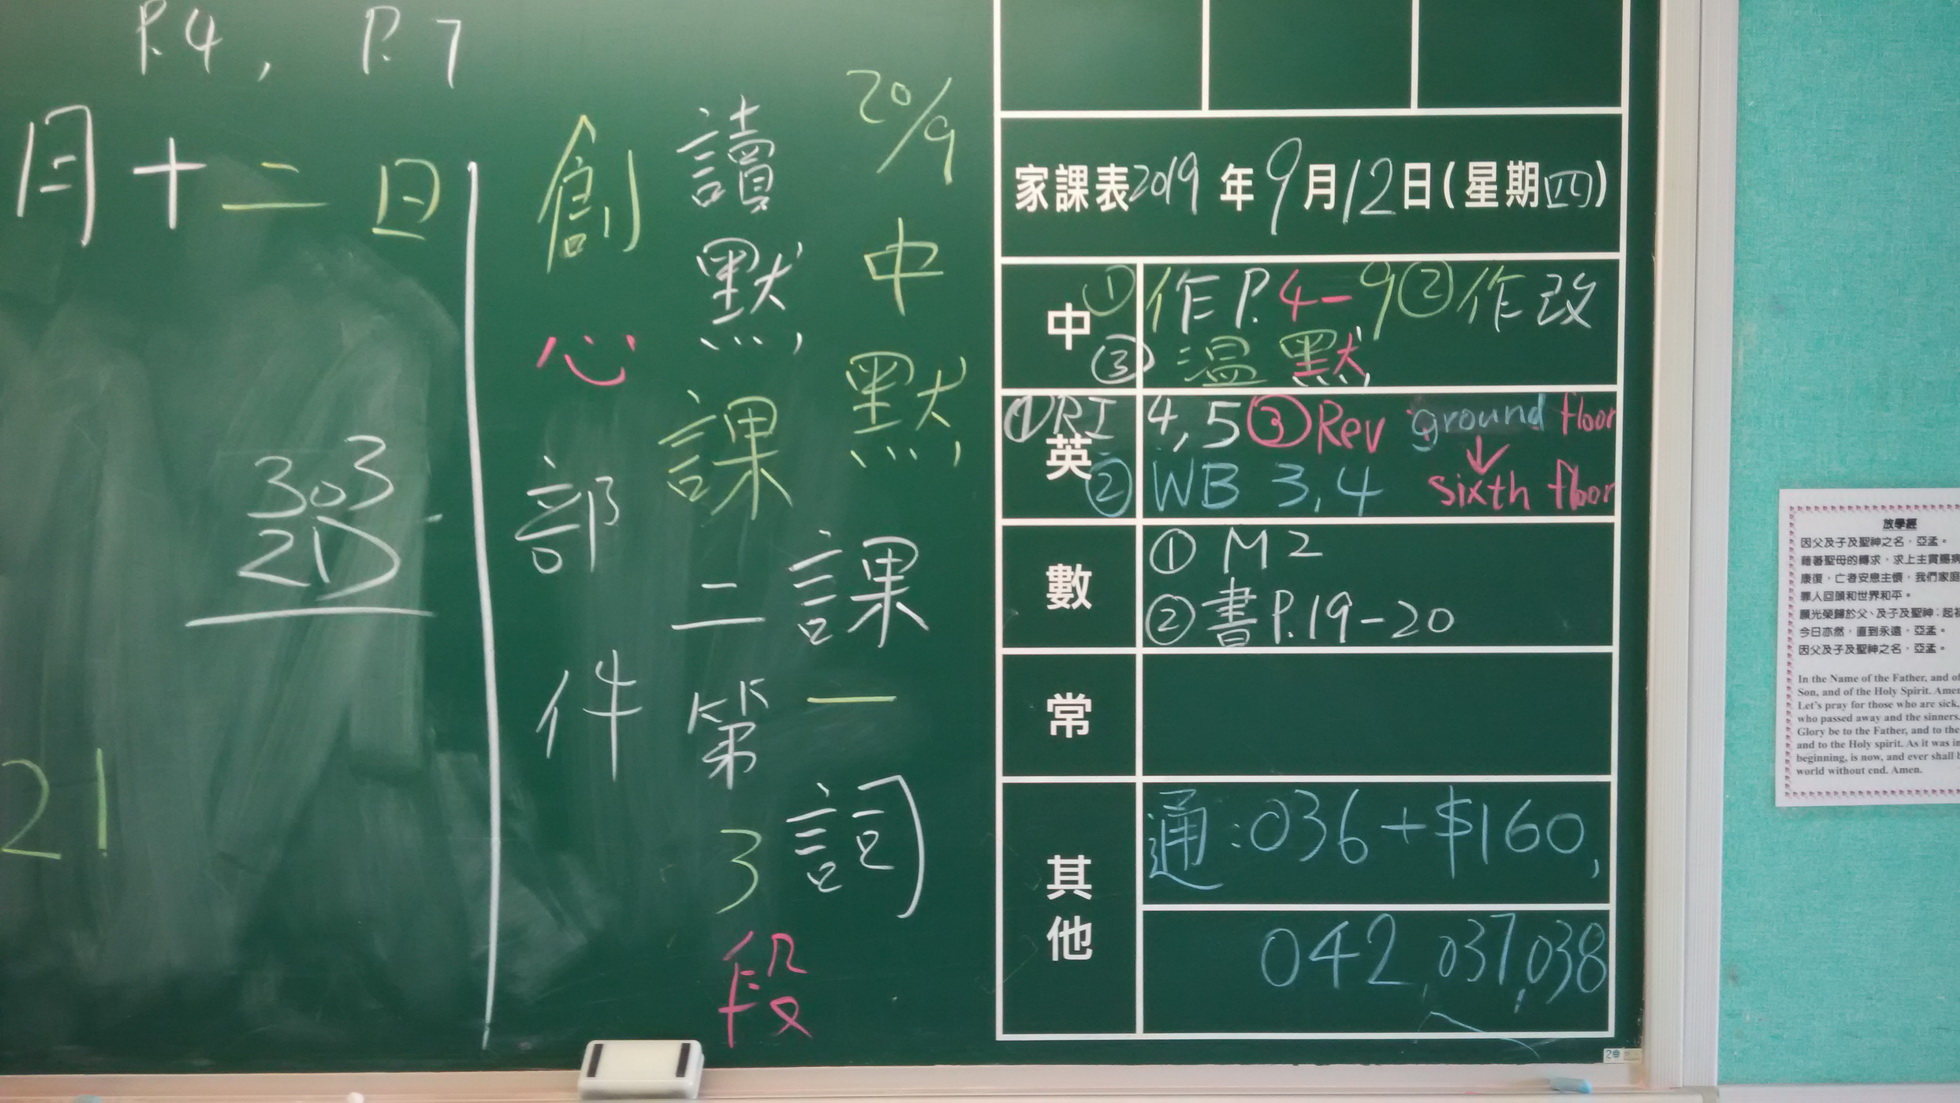 P.4, P.7
月十二日
303
2D
21
20/9
中默
課一
詞
讀默
課二第3段
創心部件
家課表2019年9月12日(星期四)
中
①作P.4-9②作改
③溫默
英
①RI 4,5③Rev ground floor
↓
②WB 3,4 sixth floor
數
①M2
②書P.19-20
常
其他
通:036+$160,
042,037,038
放學經
因父及子及聖神之名，亞孟。
藉著聖母的轉求，求上主賞賜病
康復，亡者安息主懷，我們家庭
罪人回頭和世界和平。
願光榮歸於父、及子及聖神；起初
今日亦然，直到永遠，亞孟。
因父及子及聖神之名，亞孟。
In the Name of the Father, and of
Son, and of the Holy Spirit. Amen
Let's pray for those who are sick,
who passed away and the sinners.
Glory be to the Father, and to the
and to the Holy spirit. As it was in
beginning, is now, and ever shall b
world without end. Amen.